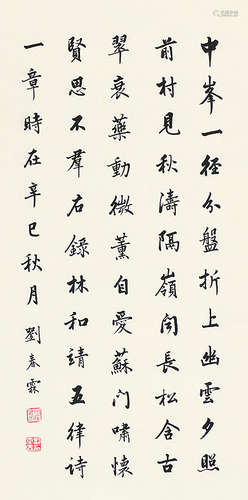 中峯一径分盤折上幽雲夕照
前村見秋濤隔嶺闻長松含古
翠衰藥動微薰自愛蘇门嘯懷
賢思不羣右錄林和靖五律詩
一章時在辛巳秋月劉春霖